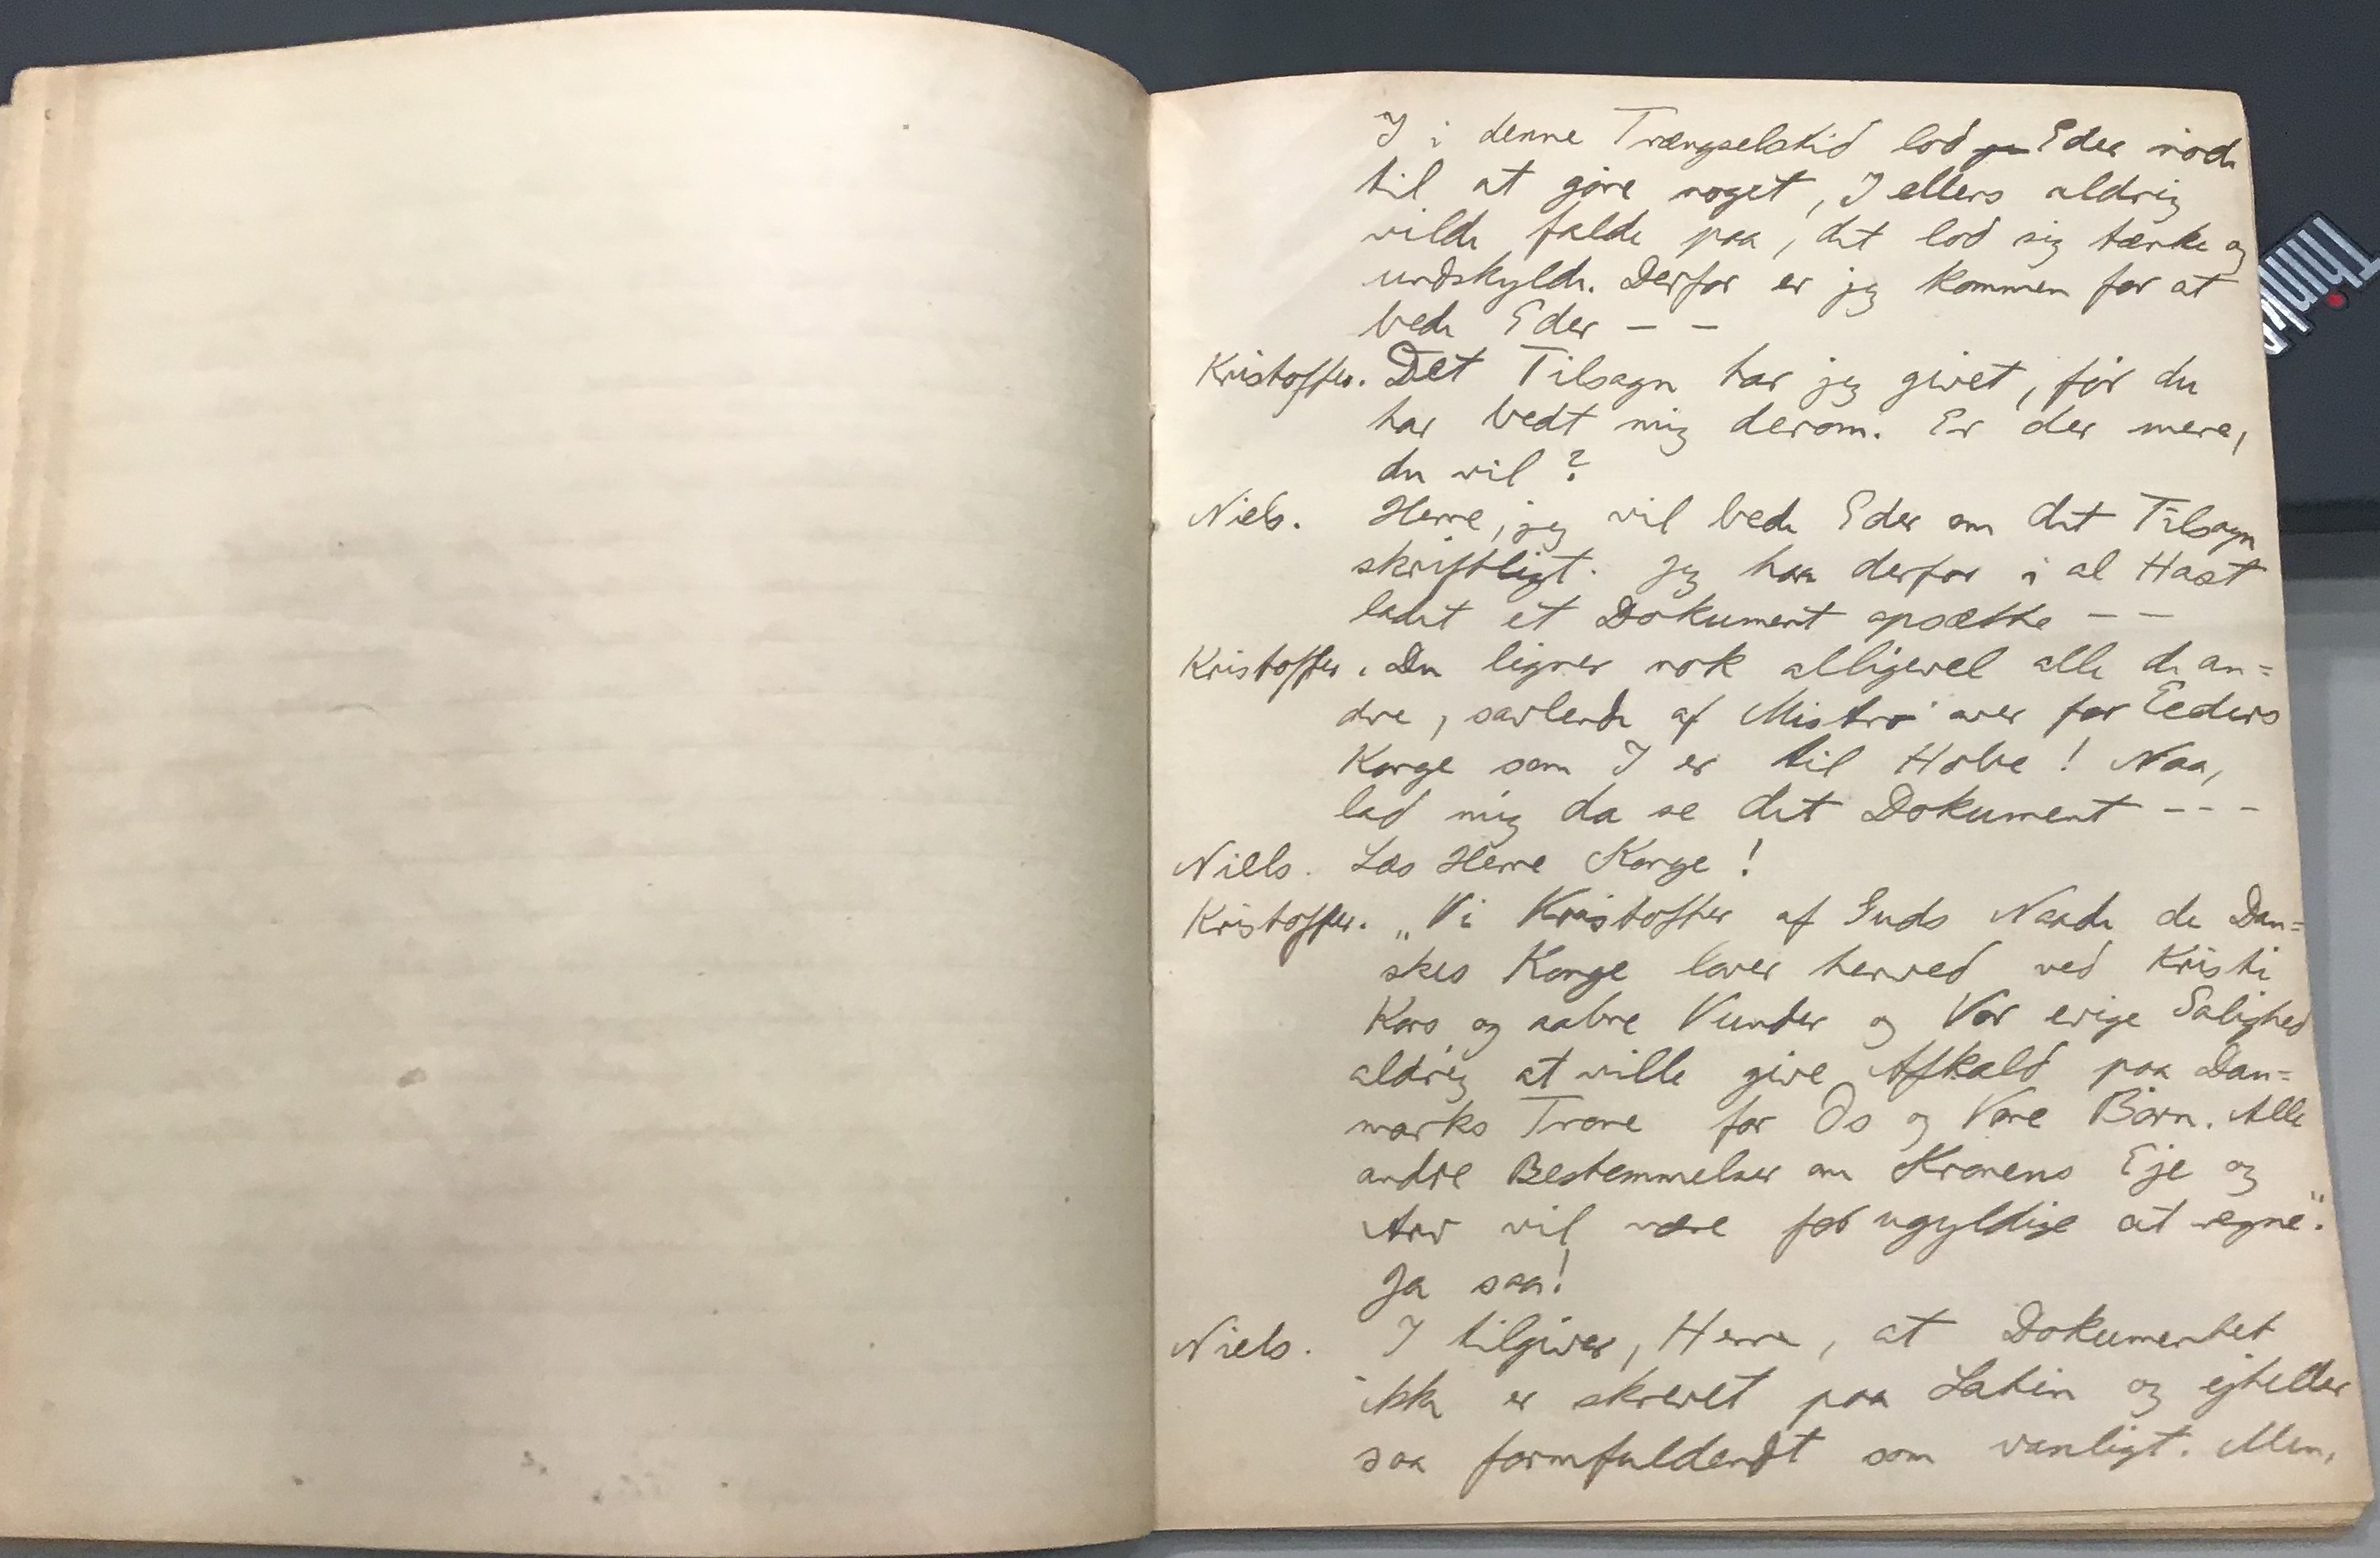 I i denne Trængselstid lod je Eder nøde
til at gøre noget, I ellers aldrig
vilde falde paa, det lod sig tænke og
undskylde. Derfor er jeg kommen for at
bede Eder — —
Kristoffer. Det Tilsagn har jeg givet, før du
har bedt mig derom. Er der mere,
du vil?
Niels. Herre, jeg vil bede Eder om det Tilsagn
skriftligt. Jeg har derfor i al Hast
ladet et Dokument opsætte — —
Kristoffer. Du ligner nok alligevel alle de an=
dre, savlende af Mistro over for Eders
Konge som I er til Hobe! Naa,
lad mig da se det Dokument — — —
Niels. Læs Herre Konge!
Kristoffer. „Vi Kristoffer af Guds Naade de Dan=
skes Konge lover herved ved Kristi
Kors og aabne Vunder og Vor evige Salighed
aldrig at ville give Afkald paa Dan=
marks Trone for Os og Vore Børn. Alle
andre Bestemmelser om Kronens Eje og
Arv vil være for ugyldige at regne".
Ja saa!
Niels. I tilgiver, Herre, at Dokumentet
ikke er skrevet paa Latin og ejheller
saa formfuldendt som vanligt. Men,
Think